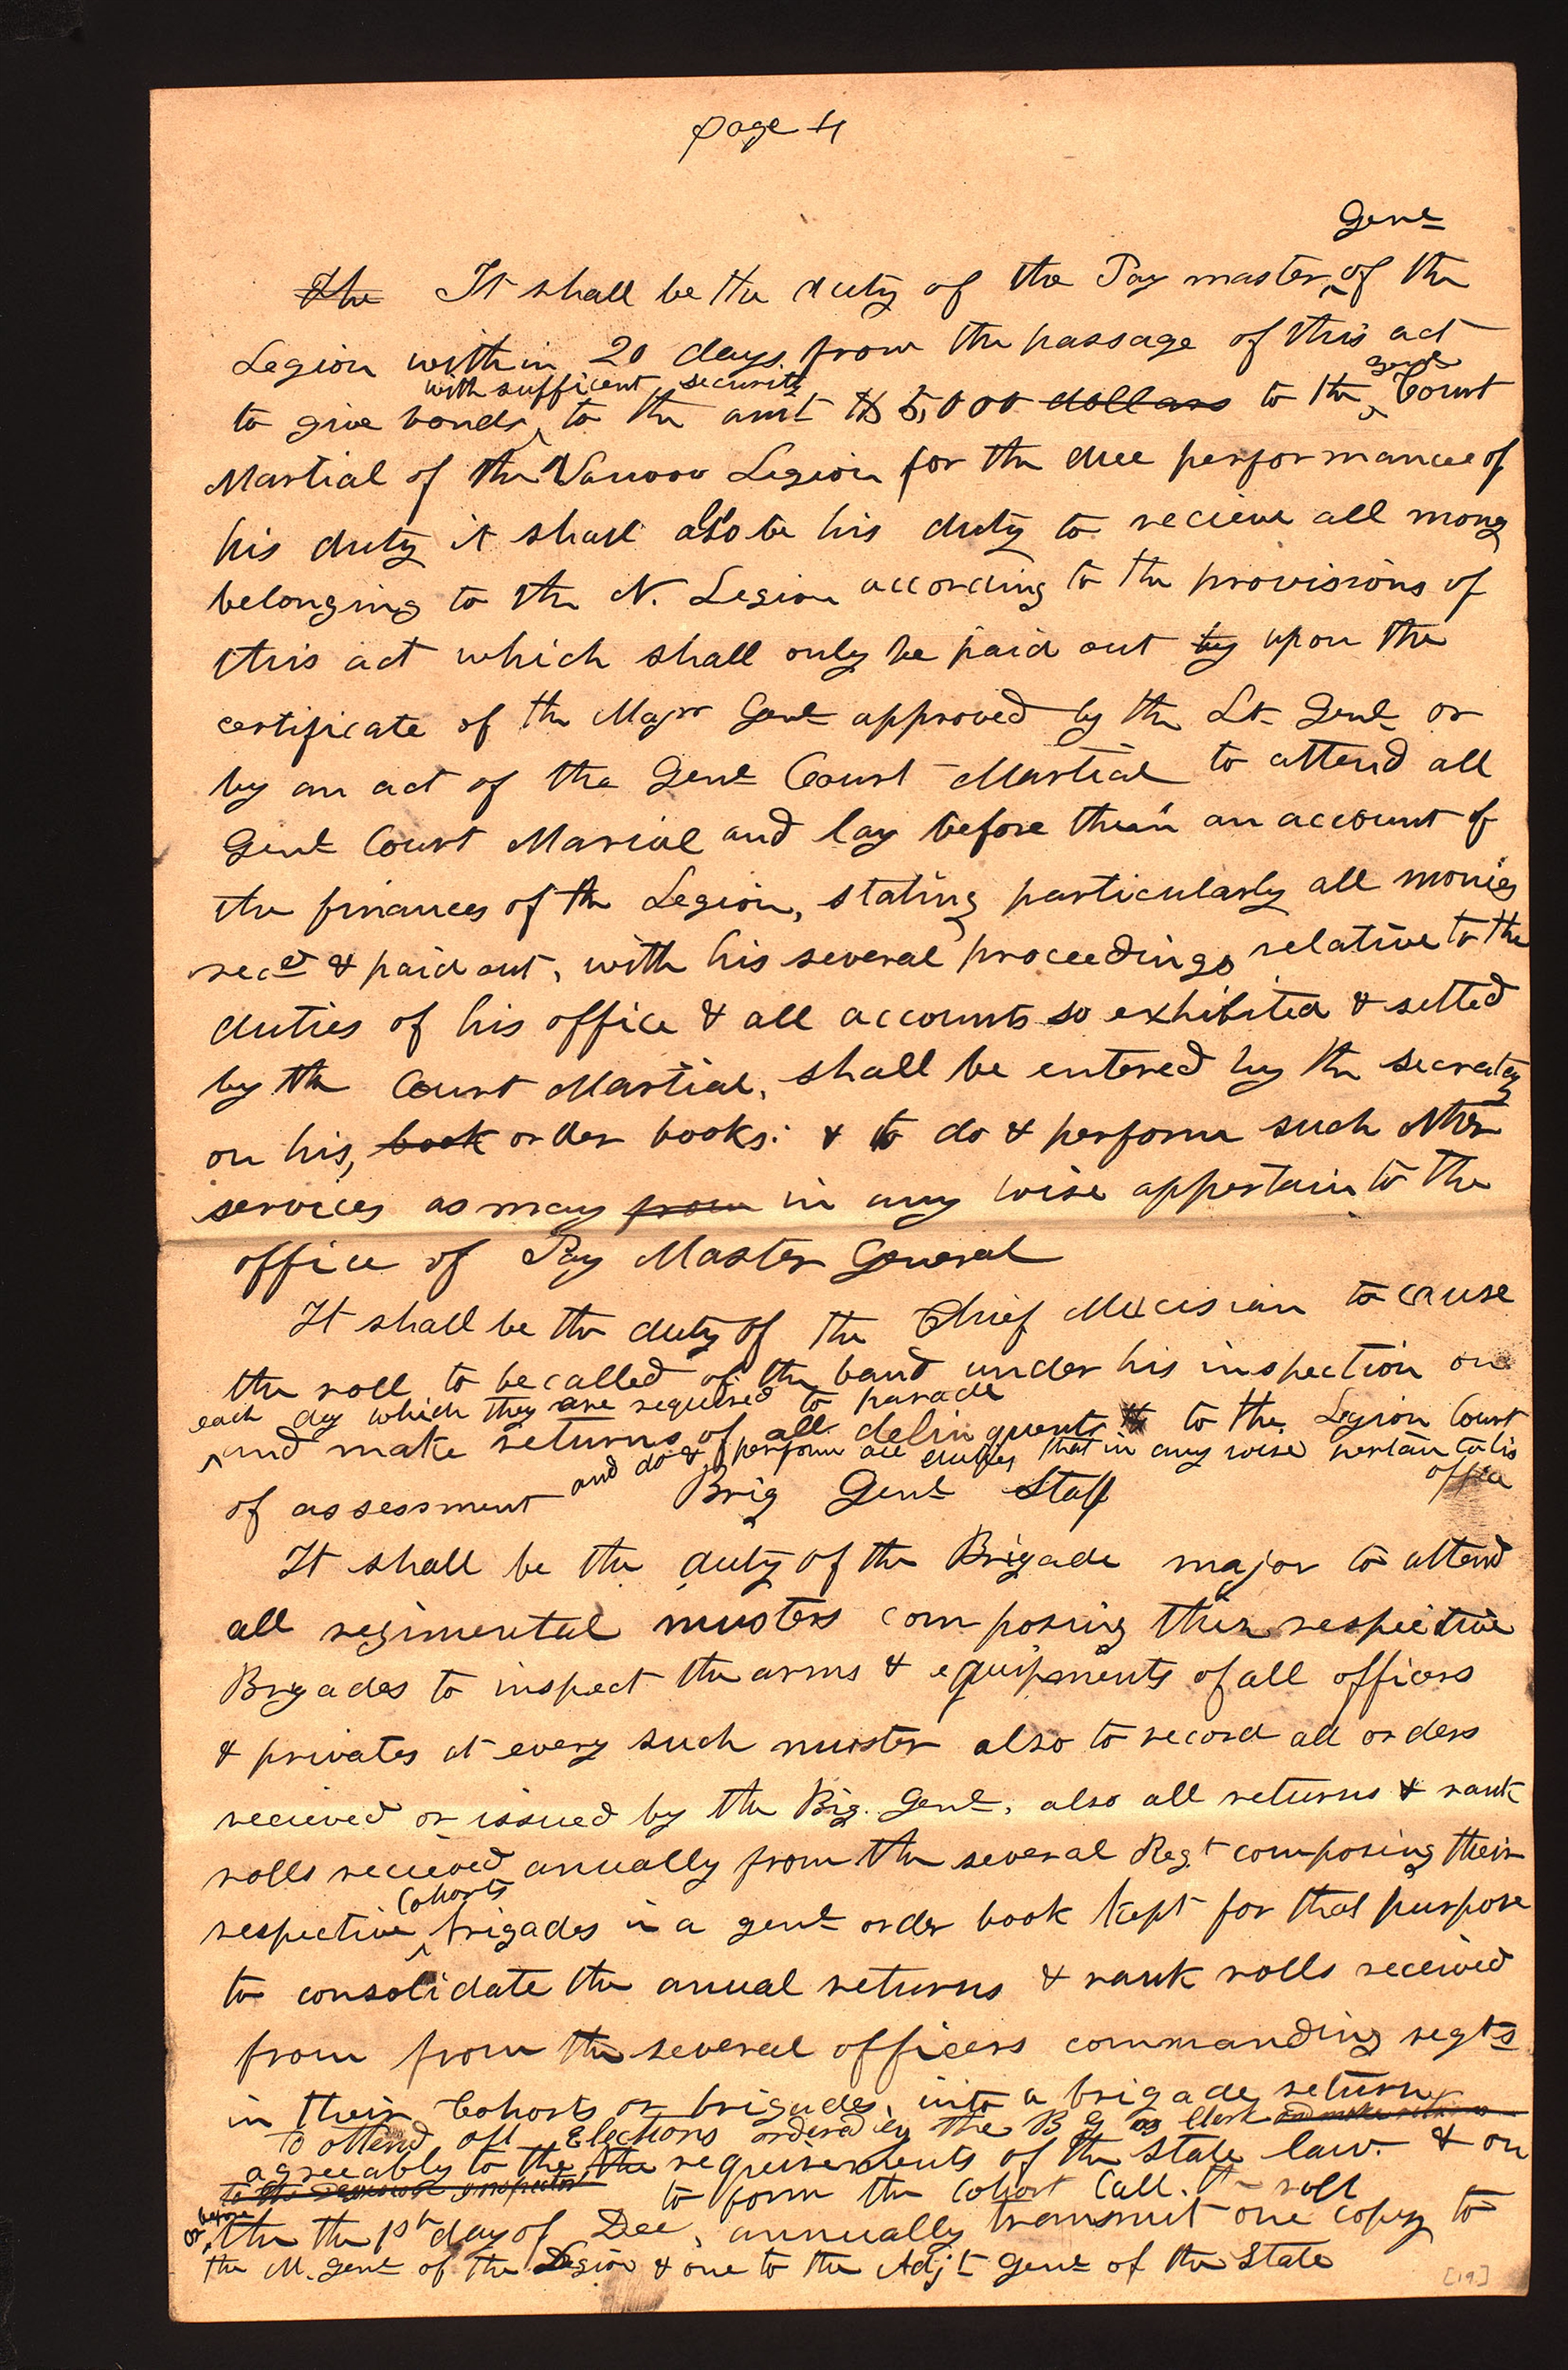 page 4
Genl
The It shall be the duty of the Pay master of the
Legion within 20 days from the passage of this act
with sufficent security genl
to give bonds to the amt $5,000 dollars to the Court
Martial of the Nauvoo Legion for the due performance of
his duty it shall also be his duty to recieve all mony
belonging to the N. Legion according to the provisions of
this act which shall only be paid out by upon the
certificate of the Majr Genl approved by the Lt Genl or
by an act of the Genl Court Martial to attend all
Genl Court Marial and lay before them an account of
the finances of the Legion, stating particularly all monies
recd & paid out, with his several proceedings relative to the
duties of his office & all accounts so exhibited & setted
by the Court Martial, shall be entered by the secratay
on his, book order books: & to do & perform such other
services as may from in any wise appertain to the
office of Pay Master General
It shall be the duty of the Chief Mucisian to cause
the roll to be called of the band under his inspection on
each day which they are required to parade
and make returns of all delinquents to the Legion Court
and do & perform all duties that in any wise pertain to his
office
of assessment Brig Genl Staff
It shall be the duty of the Brigade major to attend
all regimental musters composing their respective
Brigades to inspect the arms & equipments of all officers
& privates at every such muster also to record all orders
recieved or issued by the Big. Genl, also all returns & rank
rolls recieved anually from the several Regt composing their
Cohorts
respective brigades in a genl order book kept for that purpose
to consolidate the anual returns & rank rolls received
from from the several officers commanding regts
in their Cohorts or brigades, into a brigade return
to attend all Elections ordered by the B G as Clerk and make returns
agreeably to the the requirements of the State law. & on
to the inspector to form the Cohort Call. the roll
or before
the the 1st day of Dec, annually transmit one copy to
the M. Genl of the Legion & one to the Adjt Genl of the State
[19]